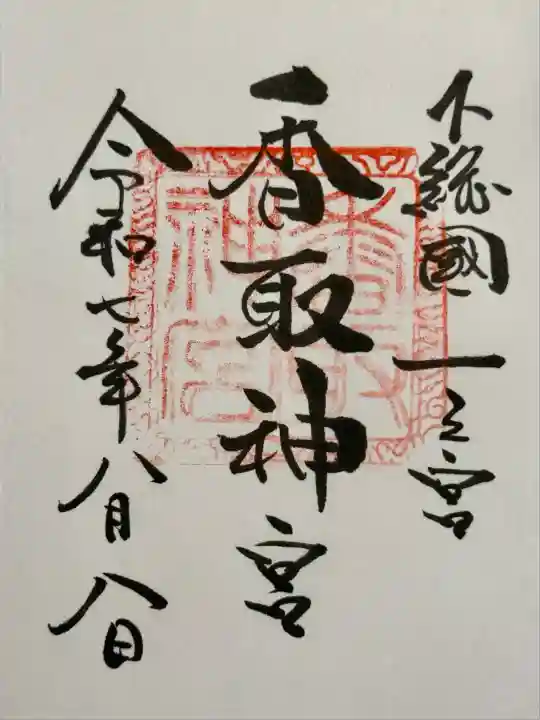 下總國一之宮
香取神宮
令和七年八月八日